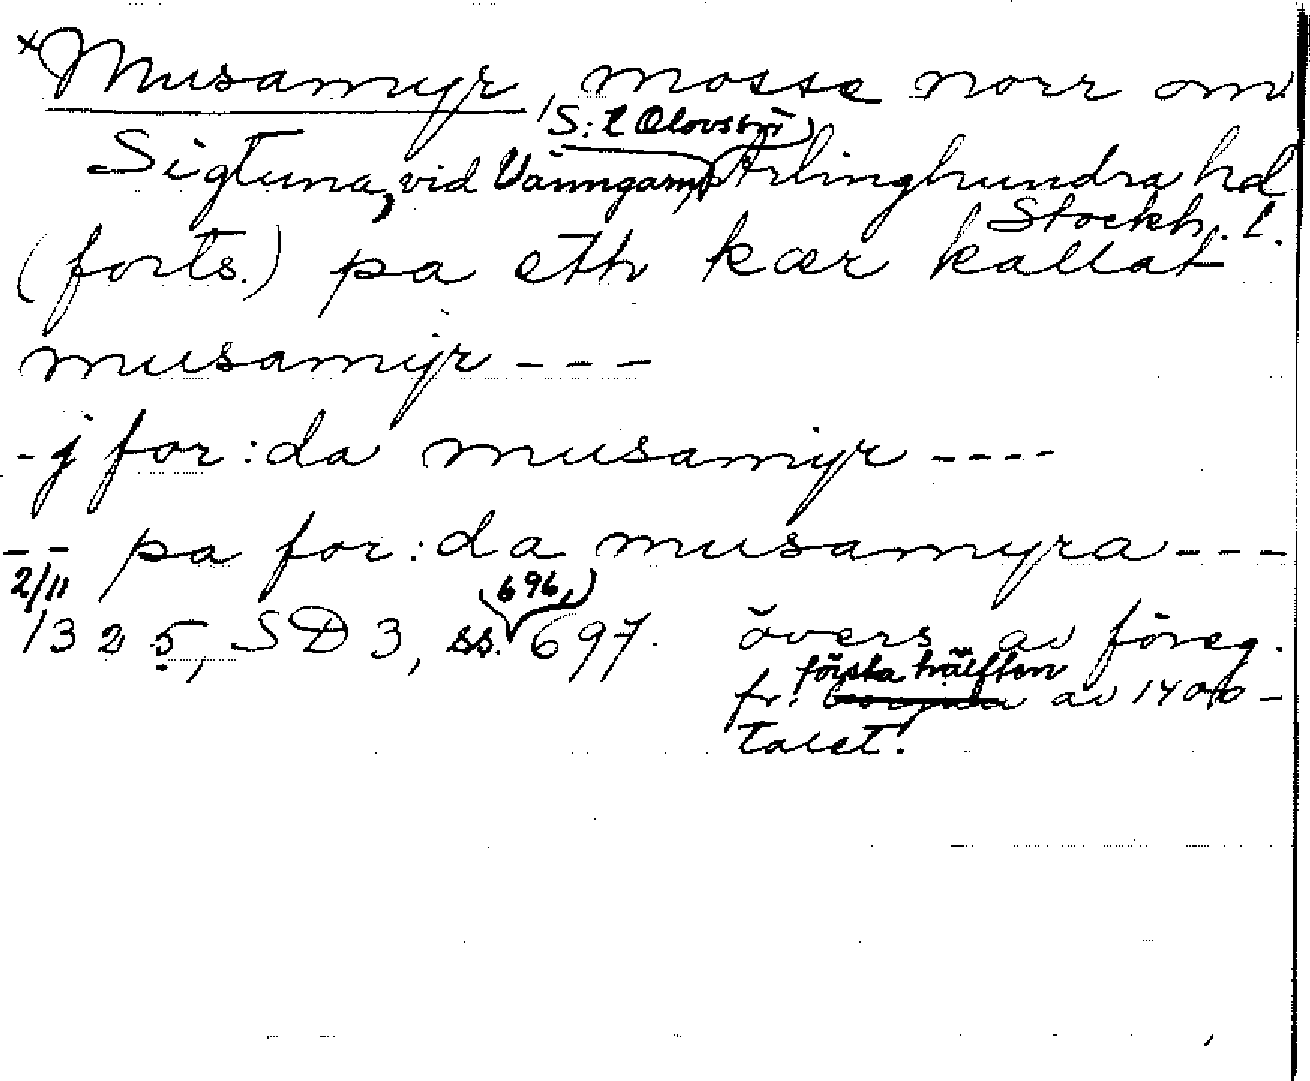 ×Musamyr, mosse norr om
(S:t Olovs sn)
Sigtuna, vid Vänngarn, Ärlinghundra hd
Stockh. l.
(forts.) pa eth kær kallat
musamijr - - -
- j for:da musamijr - - - -
- - pa for:da musamyra - - -
2/11
696,
1325, SD 3, ss. 697. övers. av föreg.
första hälften
fr. början av 1400-
talet.